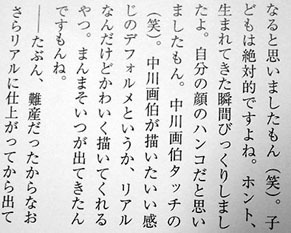 なると思いましたもん（笑）。子
どもは絶対的ですよね。ホント、
生まれてきた瞬間びっくりしまし
たよ。自分の顔のハンコだと思い
ましたもん。中川画伯タッチの
（笑）。中川画伯が描いたいい感
じのデフォルメというか、リアル
なんだけどかわいく描いてくれる
やつ。まんまそいつが出てきたん
ですもんね。
――たぶん、難産だったからなお
さらリアルに仕上がってから出て